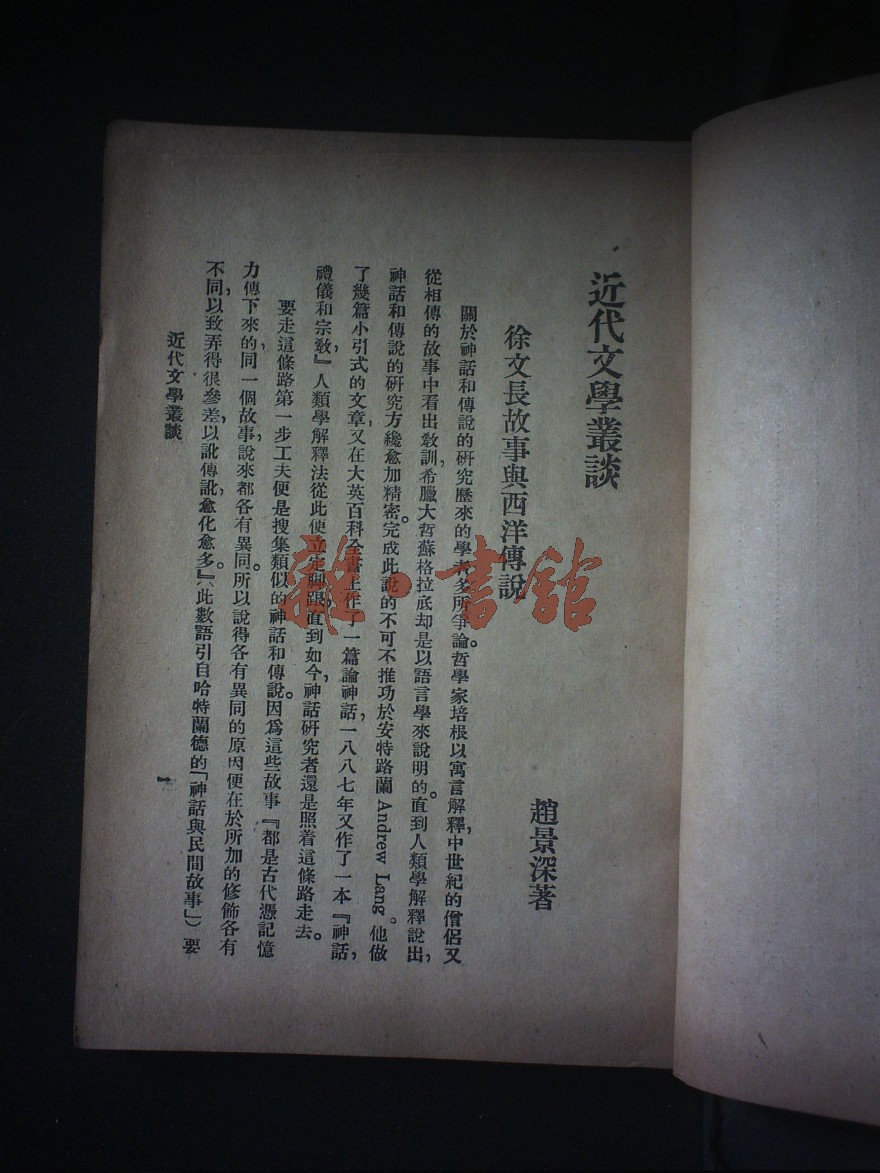 近代文學叢談
徐文長故事與西洋傳說
趙景深著
關於神話和傳說的研究歷來的學者多所爭論。哲學家培根以寓言解釋,中世紀的僧侶又
從相傳的故事中看出敎訓,希臘大哲蘇格拉底却是以語言學來說明的。直到人類學解釋說出,
神話和傳說的研究方纔愈加精密。完成此說的不可不推功於安特路蘭 Andrew Lang。他做
了幾篇小引式的文章,又在大英百科全書上作了一篇論神話,一八八七年又作了一本『神話,
禮儀和宗敎』人類學解釋法從此便立定脚跟,直到如今,神話研究者還是照着這條路走去。
要走這條路第一步工夫便是搜集類似的神話和傳說。因爲這些故事『都是古代憑記憶
力傳下來的,同一個故事,說來都各有異同。所以說得各有異同的原因便在於所加的修飾各有
不同,以致弄得很參差,以訛傳訛,愈化愈多。』(此數語引自哈特蘭德的「神話與民間故事」)要
近代文學叢談
一
雜·書館